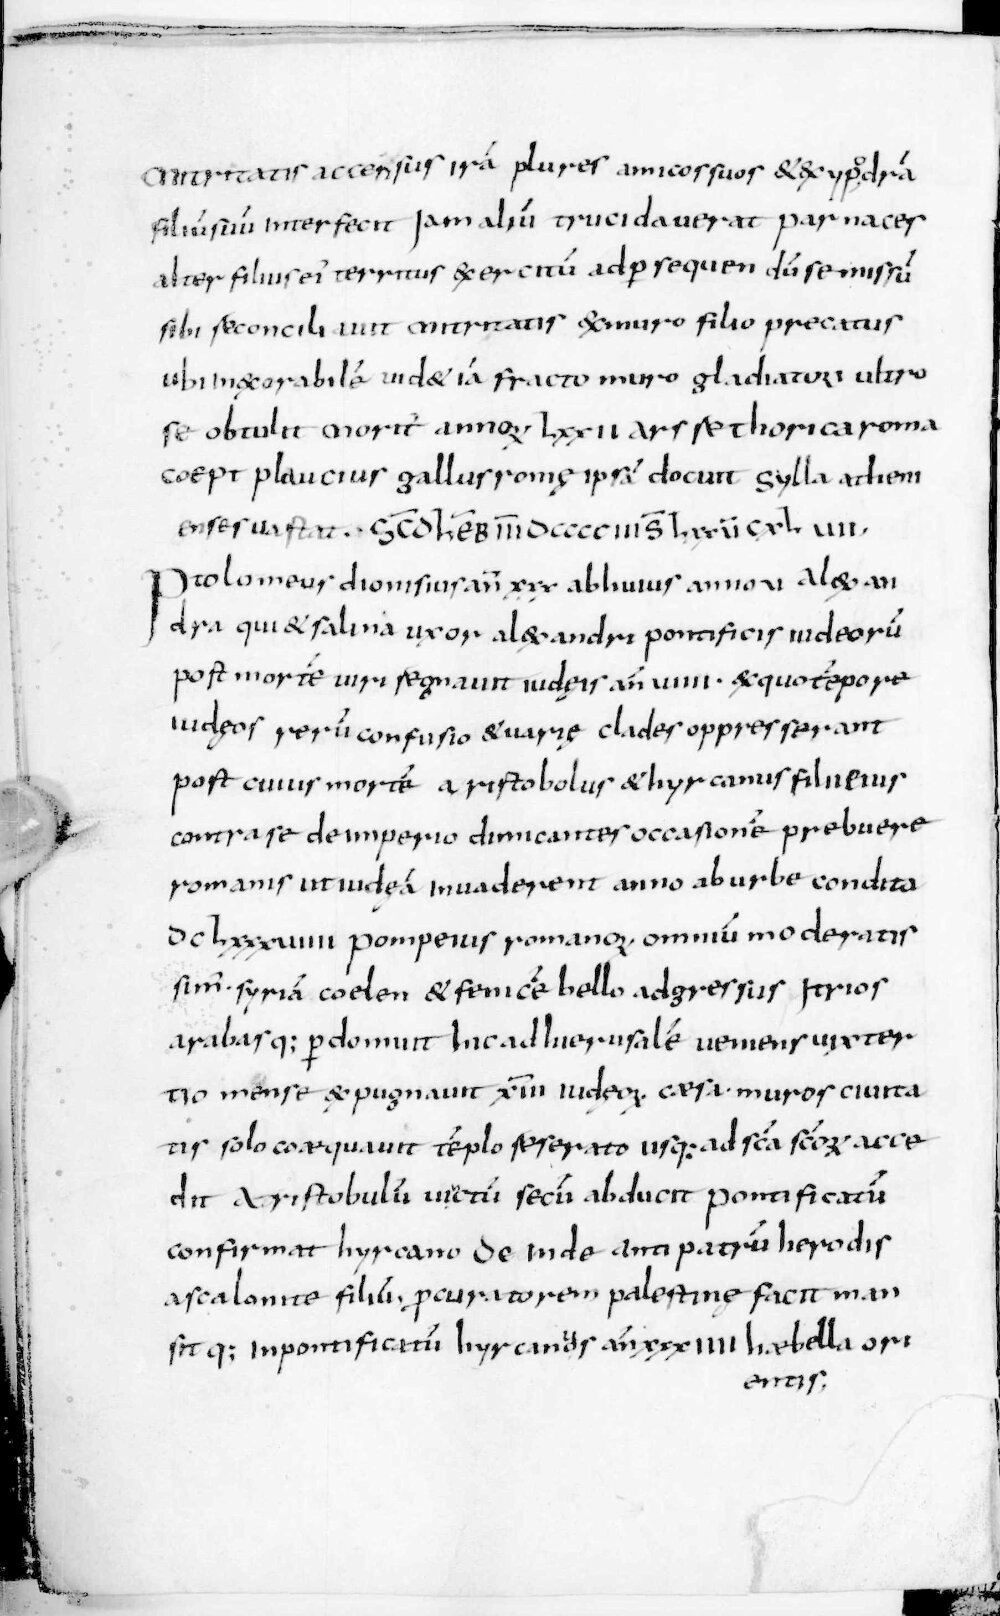 Mitritatis accensus irā plures amicos suos & exypodrā
filiū suū interfecit Jam aliū trucidaverat parnaces
alter filius ei territus exercitū adpsequendū se missū
sibi seconciliavit mitritatis exmuro filio precatus
ubi inexorabilē vid& iā fracto muro gladiatori ultro
se obtulit morit annoꝝ lxxii ars rethorica roma
coept plaucius gallus romę ipsā docuit Sylla atheni
enses vastat.
Ptolomeus dionisius añ xxx ablivius anno xi Alexan
dra qui & salina uxor alexandri pontificis iudeorū
post mortē viri regnavit iudęis añ viiii. exquo tēpore
iudęos rerū confusio & varię clades oppresserant
post cuius mortē aristobolus & hyrcanus filii eius
contra se deimperio dimicantes occasionē prebuere
romanis ut iudęā invaderent anno aburbe condita
dclxxxviiii pompeius romanoꝝ omniū moderatis
sim̄. syriā coelen & fenicē bello adgressus Jtrios
arabasq; pdomuit hic adhierusalē veniens vix ter
tio mense expugnavit xiii iudęoꝝ cæsa. muros civita
tis solo coæquavit tēplo reserato usq; ad scā scōꝝ acce
dit Aristobulū victū secū abducit pontificatū
confirmat hyrcano De inde antipatrū herodis
ascalonite filiū, pcuratorem palestinę facit man
sit q; inpontificatū hyrcanus añ xxxiiii hæbella ori
entis;